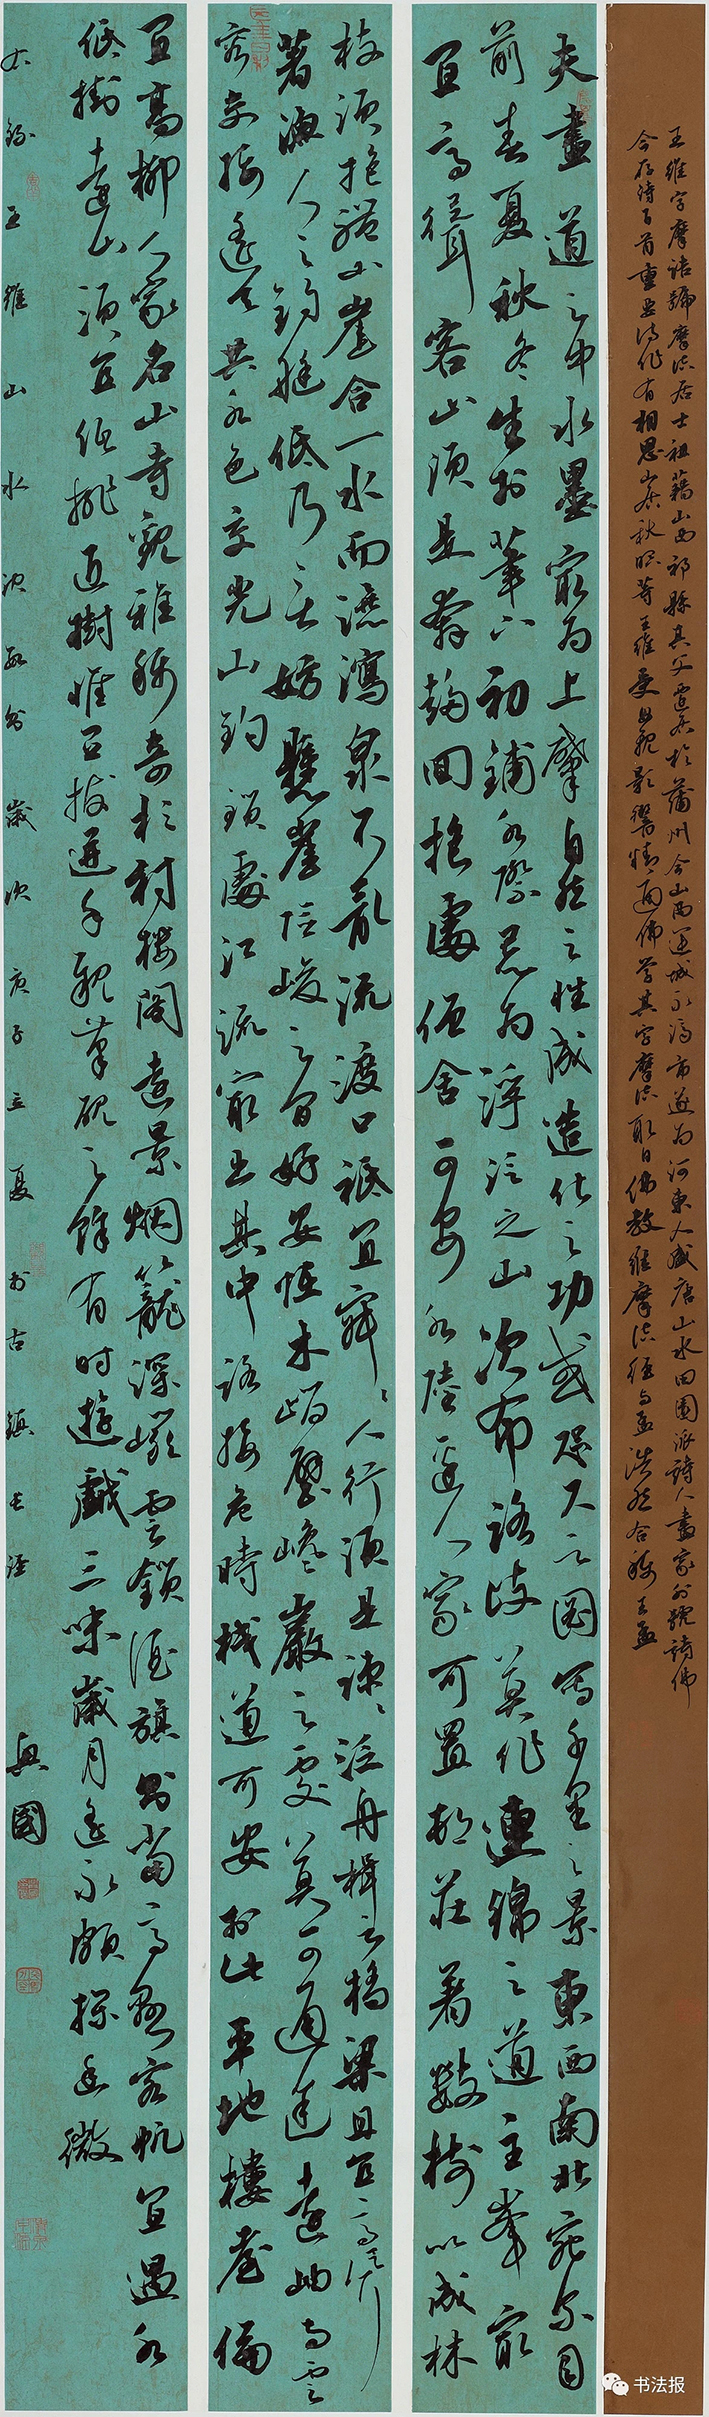 王維字摩詰號摩詰居士祖籍山西祁縣其父遷居於蒲州今山西運城永濟市遂為河東人盛唐山水田園派詩人畫家外號詩佛
今存詩百首重要詩作有相思山居秋暝等王維受母親影響精通佛學其字摩詰取自佛教維摩詰經与孟浩然合稱王孟
夫畫道之中水墨最為上肇自然之性成造化之功或咫尺之圖寫千里之景東西南北宛尔目
前春夏秋冬生於筆下初鋪水際忌為浮泛之山次布路歧莫作連綿之道主峯最
宜高聳客山須是奔趨回抱處僧舍可安水陸邊人家可置村莊著數樹以成林
枝須抱體山崖合一水而瀉瀑泉不亂流渡口秖宜寂寂人行須是疎疎泛舟楫之橋梁且宜高聳
著漁人之釣艇低乃无妨懸崖險峻之間好安怪木峭壁巉巖之處莫可通途遠岫与雲
容交接遙天共水色交光山鉤鎖處江流最出其中路接危時棧道可安於此平地樓臺偏
宜高柳人家名山寺觀雅稱奇杉村樓閣遠景煙籠深巖雲鎖酒旗則當高懸客帆宜遇水
低掛遠山須宜低排近樹惟宜拔迸手親筆硯之餘有時遊戲三昧歲月遙永頗探幽微
右錄王維山水決 歲次庚子立夏於古鎮 興國
书法报